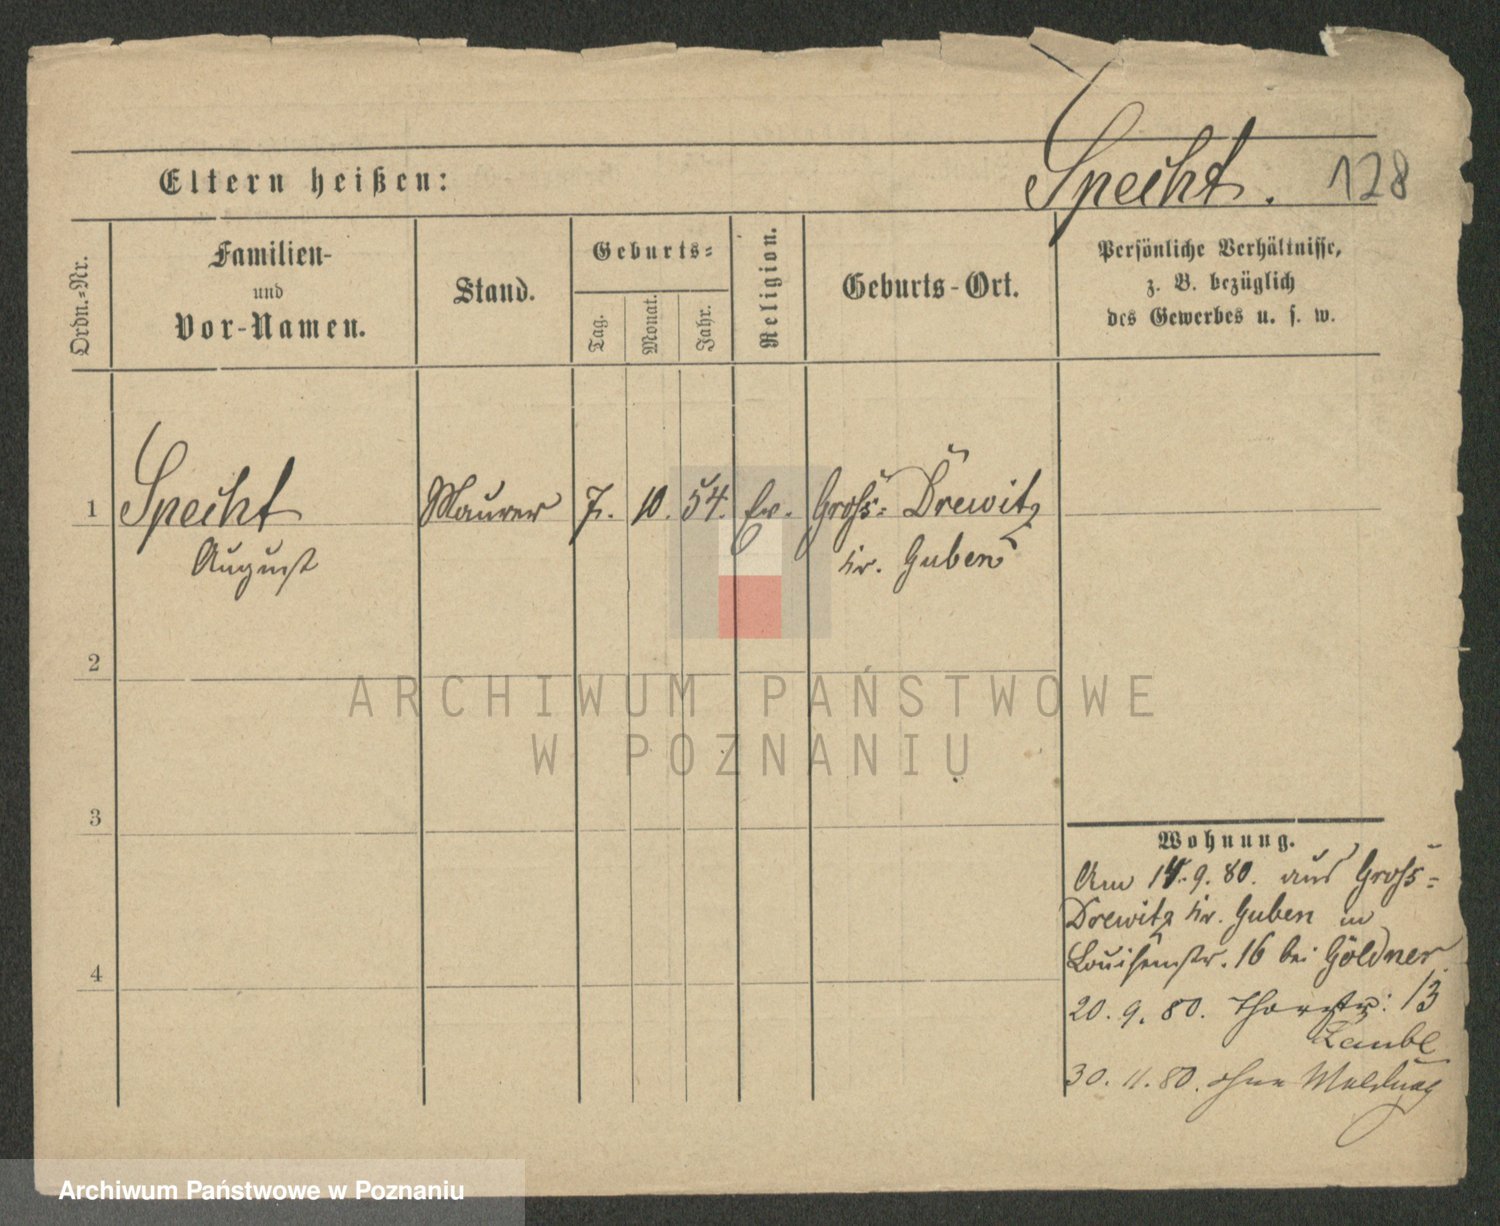 Specht. 128
Eltern heißen:
Ordn.=Nr.
Familien-
und
Vor-Namen.
Stand.
Geburts=
Tag.
Monat.
Jahr.
Religion.
Geburts-Ort.
Persönliche Verhältnisse,
z. B. bezüglich
des Gewerbes u. s. w.
1 Specht Maurer 7. 10. 54. Ev. Groß= Drewitz
August Kr. Guben
2
ARCHIWUM PAŃSTWOWE
W POZNANIU
3
Wohnung.
Am 14.9.80. aus Groß=
Drewitz Kr. Guben in
Louisenstr. 16 bei Göldner
4
20. 9. 80. Thorstr: 13
30. 11. 80. ohne Meldung
Archiwum Państwowe w Poznaniu